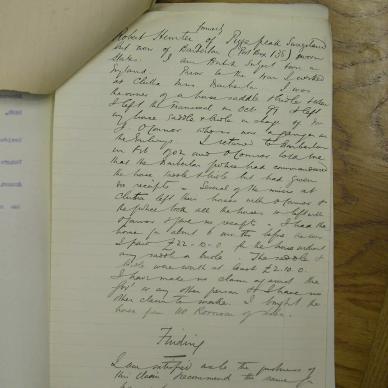 formerly
Robert Hunter of Pigg's peak Swaziland
but now of Barberton (P.O. Box 138)
states. I am British subject born in
England. Prior to the war I worked
at Clutha Mine Barberton. I was
the owner of a horse saddle & bridle & when
I left the Transvaal in Oct 99 I left
my horse saddle & bridle in charge of
O'Connor who is now a ganger on
the railways. I returned to Barberton
in and O'Connor told me
that the Barberton police had commandeered
the horse saddle & bridle but had given
no receipts. Several of the miners at
Clutha left their horses with O'Connor &
the police took all the horses left with
O'Connor & gave no receipt. I had the
horse for about 6 before the war
I paid £22-10-0 for the horse without
any saddle or bridle. The saddle &
bridle were worth at least £2.10.0
I have made no claim against the
or any other person & I have no
other claim to make. I bought the
horse from
Finding
I am satisfied as to the
this claim & recommend the